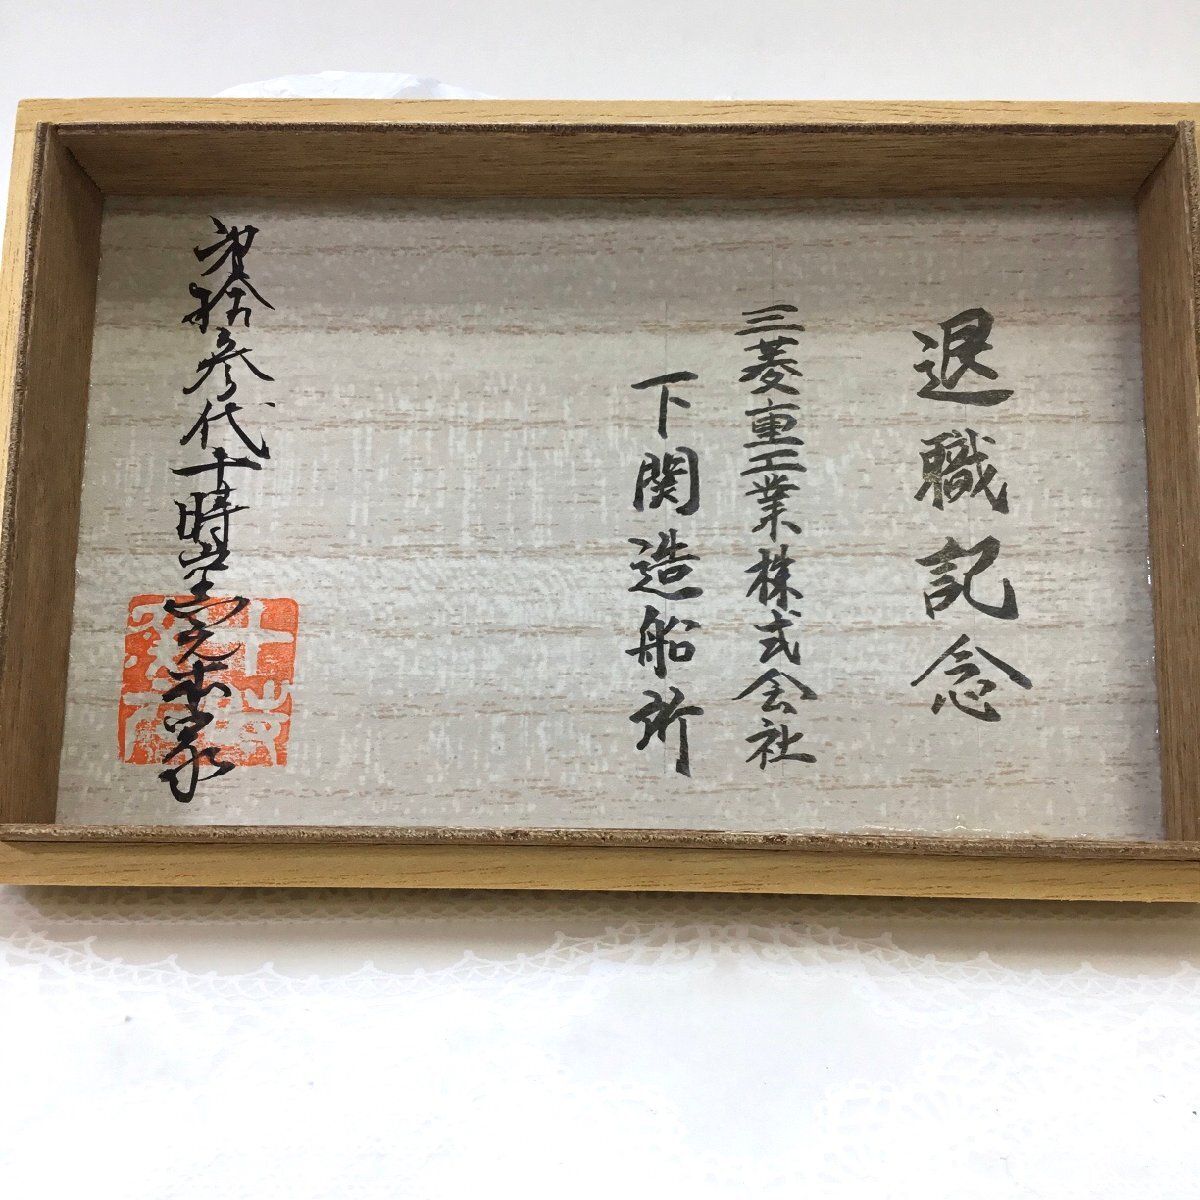 退職記念
三菱重工業株式会社
下関造船所
弐拾参代十時